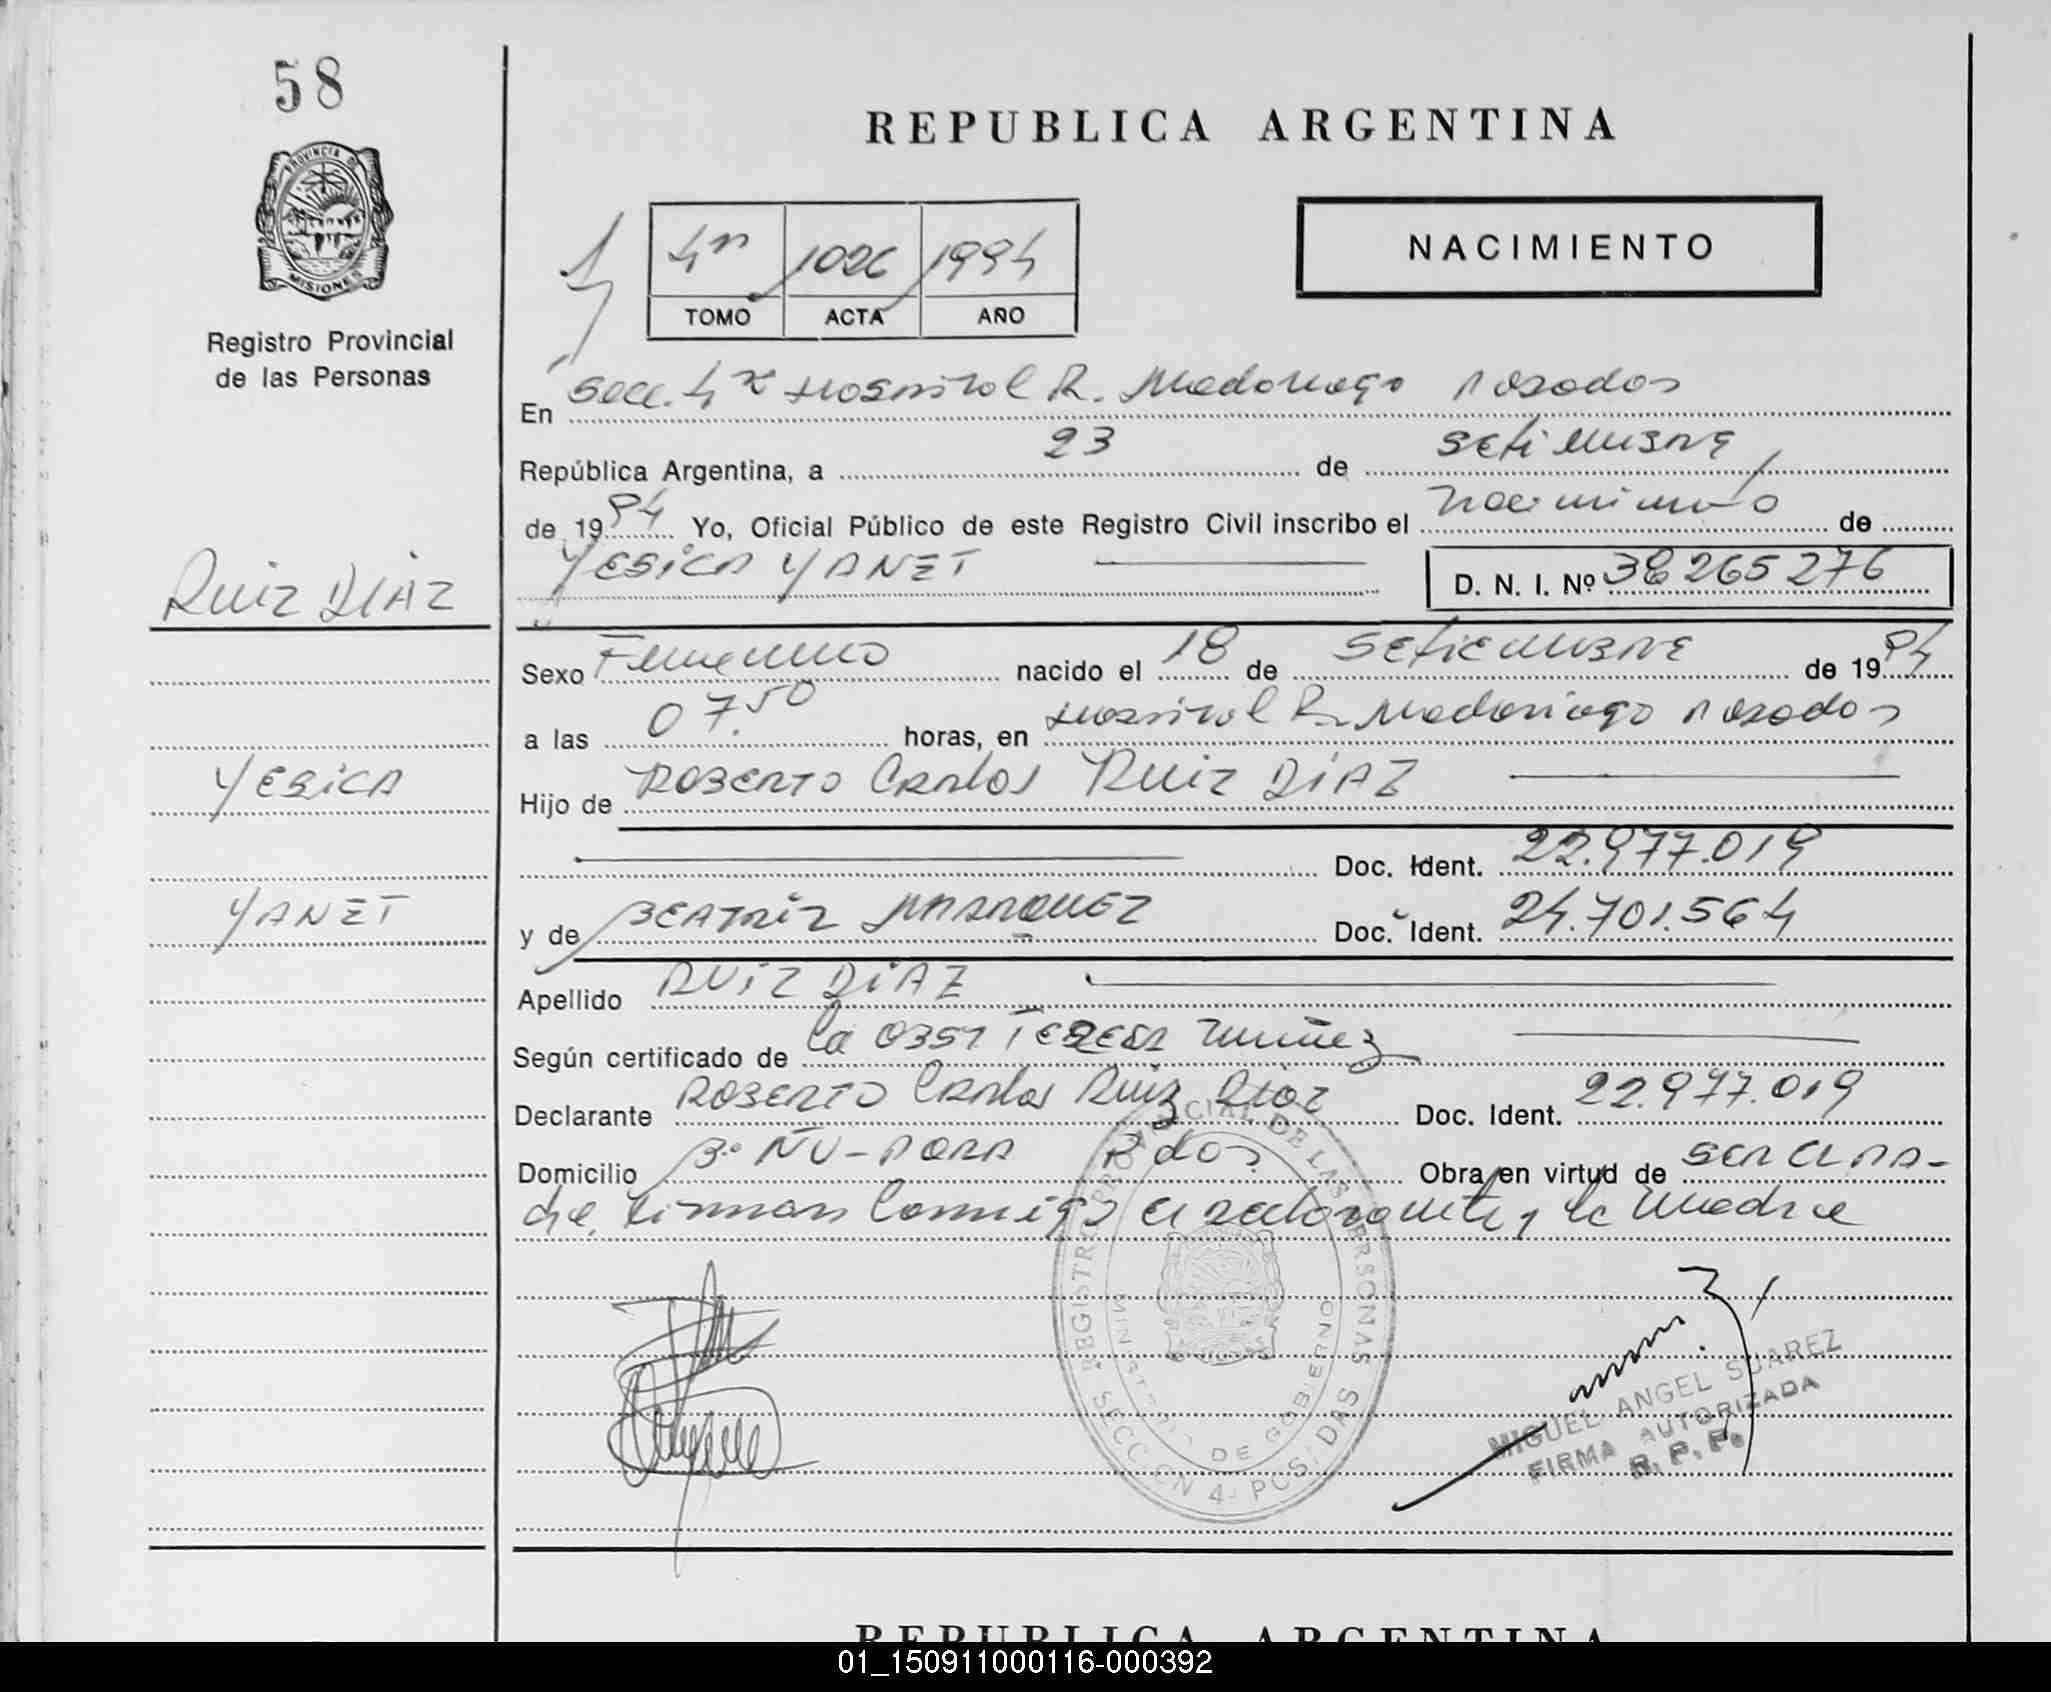 58
PROVINCIA DE
MISIONES
Registro Provincial
de las Personas
REPUBLICA ARGENTINA
NACIMIENTO
1026 1994
TOMO ACTA AÑO
En Secc. 4ª Hospital R. Madariaga Posadas
República Argentina, a 23 de Setiembre
de 1994 Yo, Oficial Público de este Registro Civil inscribo el nacimiento de
YESICA YANET D. N. I. Nº 38265276
RUIZ DIAZ
YESICA
YANET
Sexo Femenino nacido el 18 de Setiembre de 1994
a las 07.50 horas, en Hospital R. Madariaga Posadas
Hijo de ROBERTO Carlos RUIZ DIAZ
Doc. Ident. 22.977.019
y de BEATRIZ MARQUEZ Doc. Ident. 24.701.564
Apellido RUIZ DIAZ
Según certificado de la OBST TERESA Nuñez
Declarante ROBERTO Carlos Ruiz Diaz Doc. Ident. 22.977.019
Domicilio Bº ÑU-PORA Pdas. Obra en virtud de ser el pa-
dre. firman conmigo el declarante y la madre
REGISTRO PROVINCIAL DE LAS PERSONAS
MINISTERIO DE GOBIERNO
SECCION 4- POSADAS
MIGUEL ANGEL SUAREZ
FIRMA AUTORIZADA
R. P. P.
REPUBLICA ARGENTINA
01_150911000116-000392